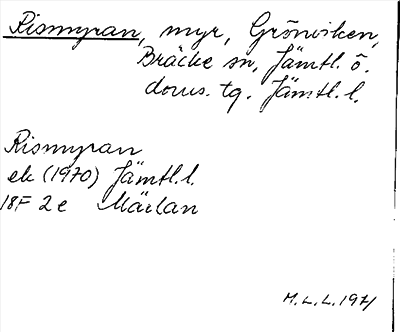 Rismyran, myr, Grönviken,
Bräcke sn, Jämtl. ö.
doms. tg. Jämtl. l.
Rismyran
ek (1970) Jämtl. l.
18F 2e Märlan
M.L.L. 1971